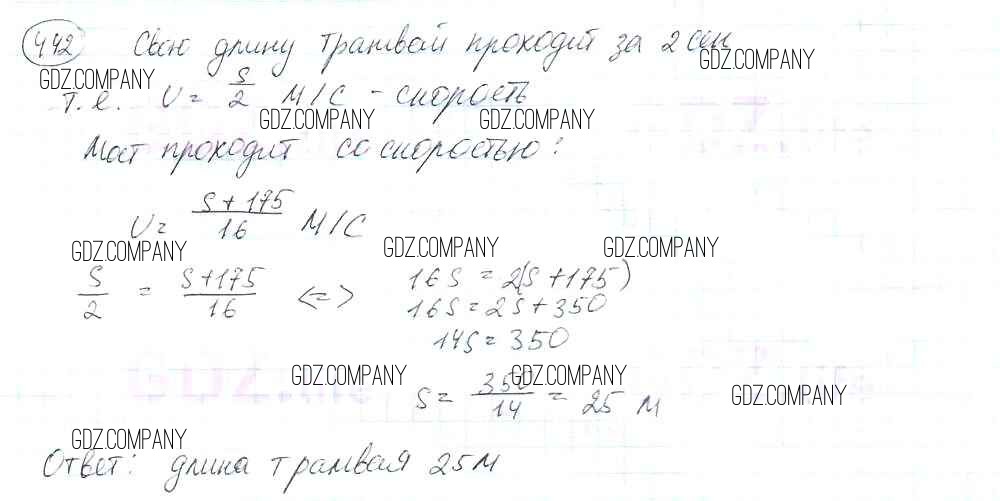 442 Свою длину трамвай проходит за 2 сек
GDZ.COMPANY GDZ.COMPANY
т.е. V = S/2 м/с - скорость
GDZ.COMPANY GDZ.COMPANY
Мост проходит со скоростью:
V = (S+175)/16 м/с
GDZ.COMPANY GDZ.COMPANY GDZ.COMPANY
S/2 = (S+175)/16 <=> 16S = 2(S+175)
16S = 2S+350
14S = 350
GDZ.COMPANY GDZ.COMPANY GDZ.COMPANY
S = 350/14 = 25 м
GDZ.COMPANY
Ответ: длина трамвая 25м